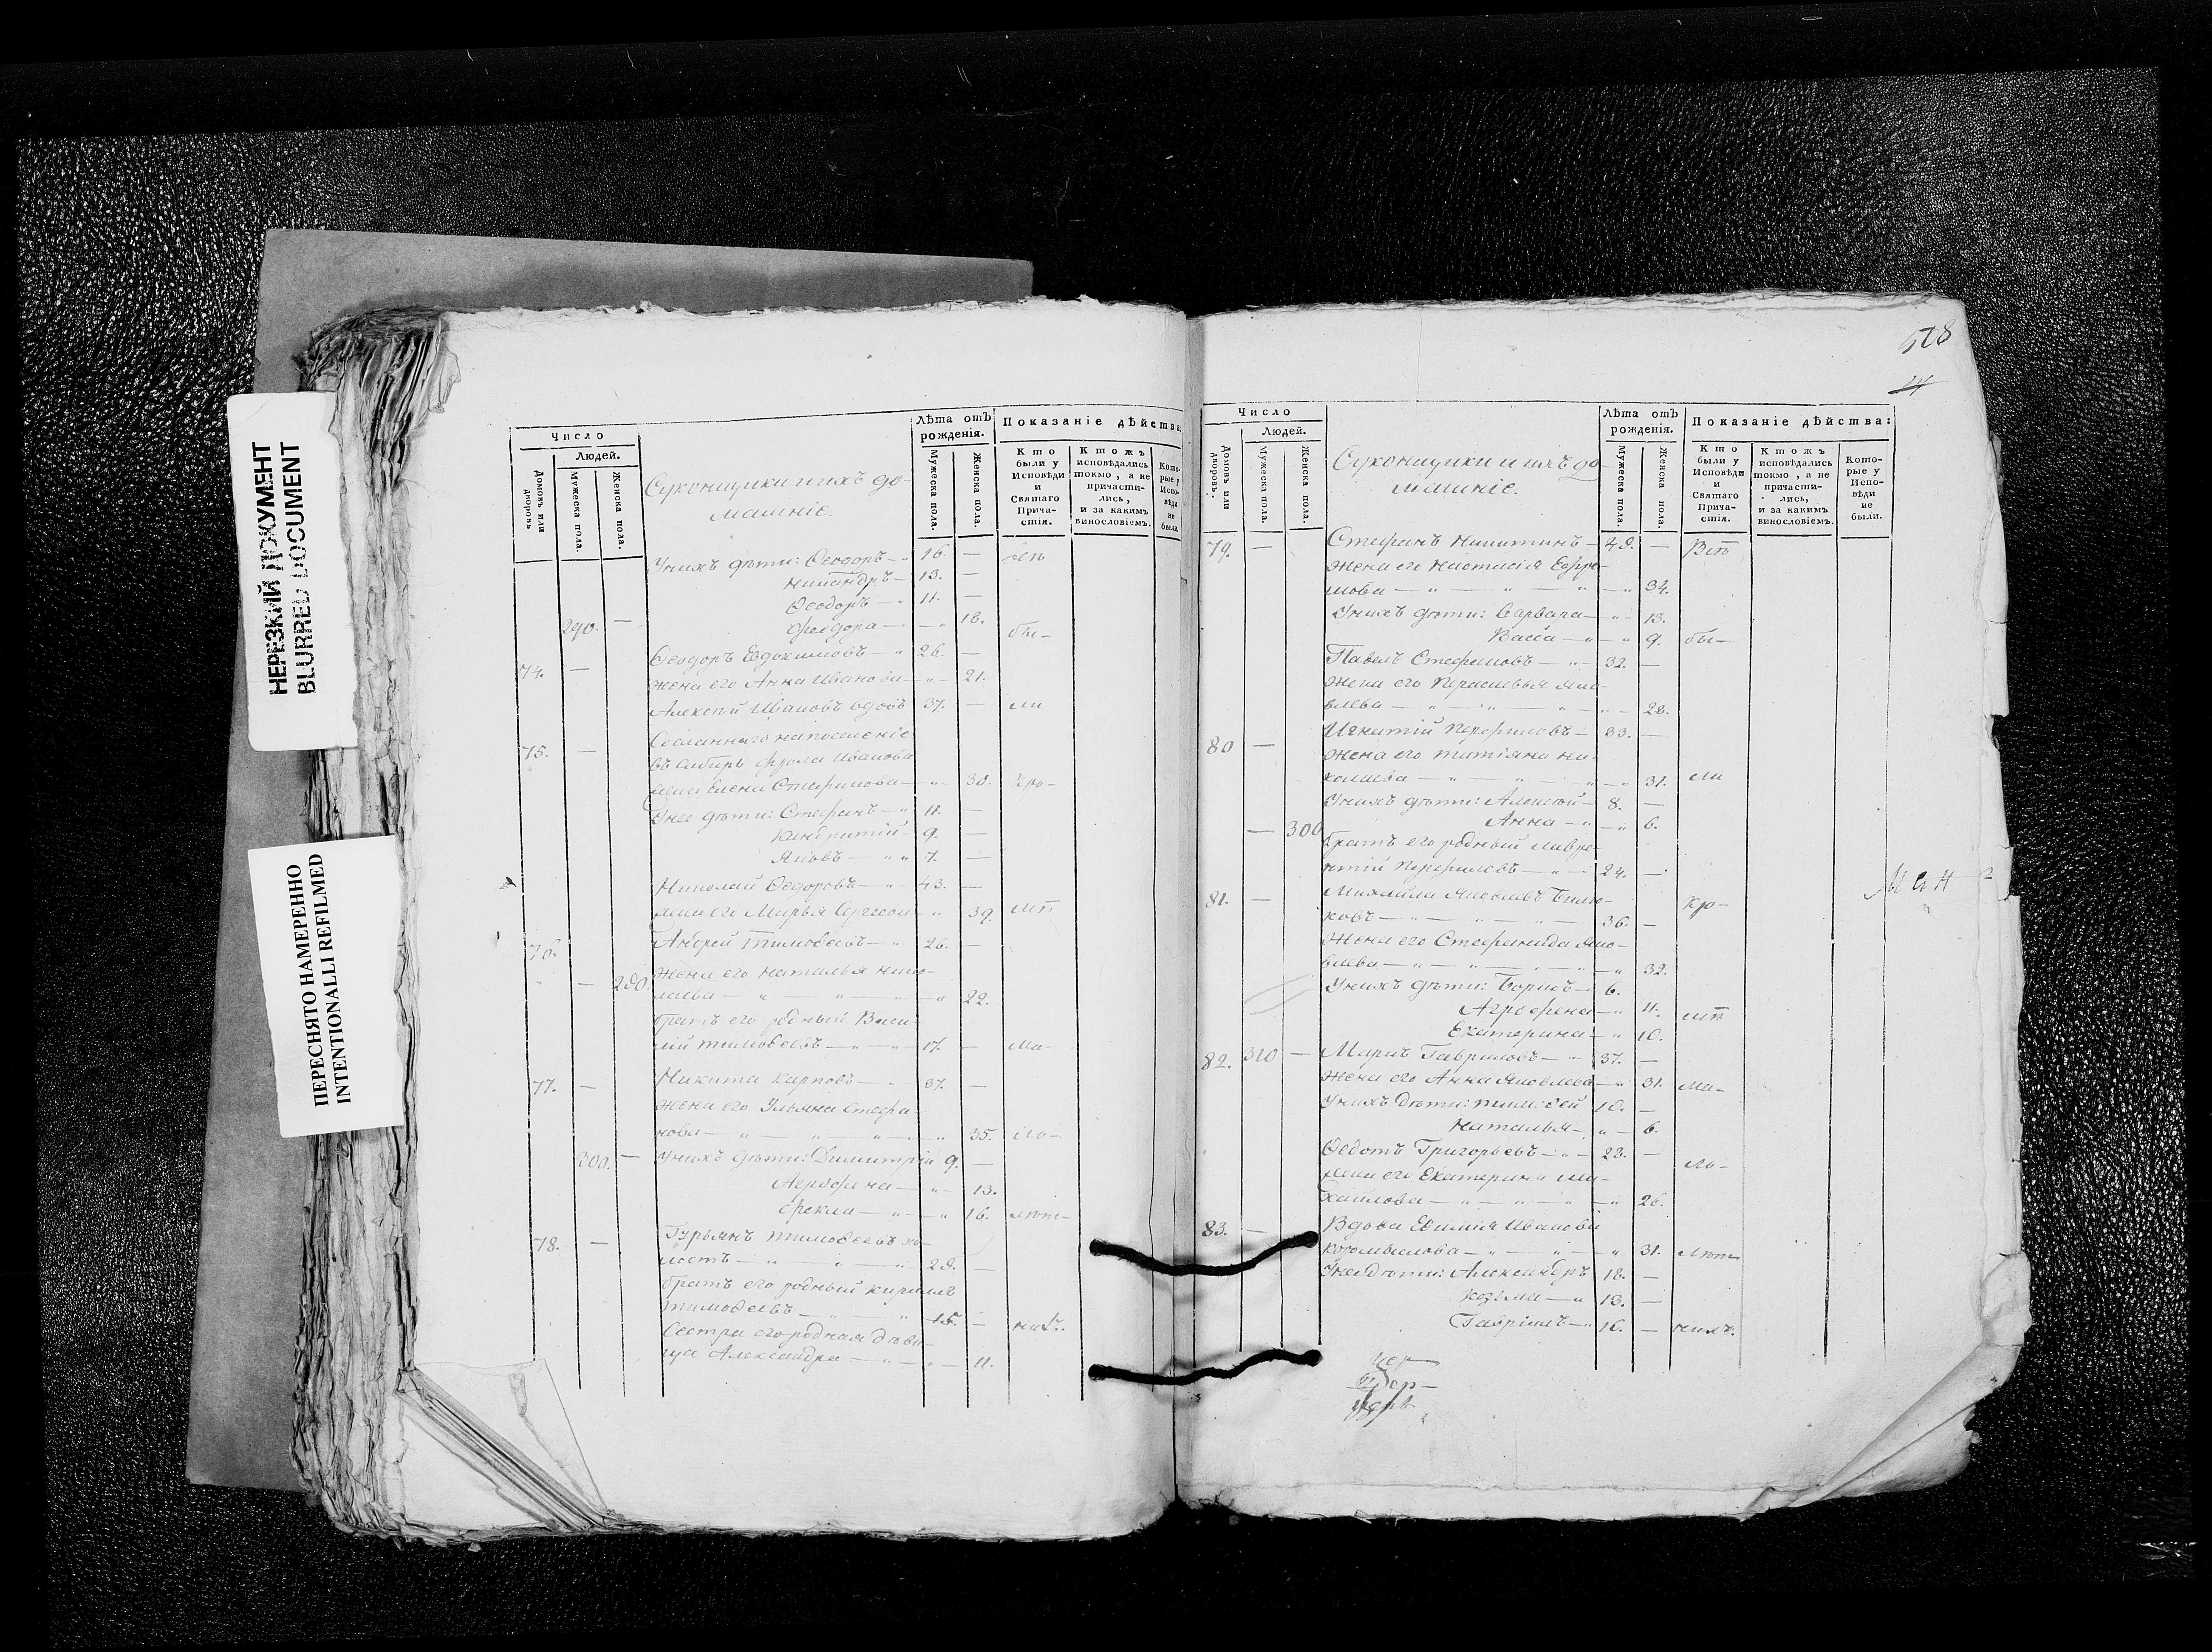 НЕРЕЗКИЙ ДОКУМЕНТ
BLURRED DOCUMENT
ПЕРЕСНЯТО НАМЕРЕННО
INTENTIONALLI REFILMED
Число
Людей.
Домовъ или дворовъ
Мужеска пола.
Женска пола.
Суконщики и ихъ до-
машніе.
Лѣта отъ рожденія.
Мужеска пола.
Женска пола.
Показаніе дѣйства
Кто были у Исповѣди и Святаго Прича-стія.
Ктожъ исповѣдались токмо, а не причасти-лись, и за какимъ винословіемъ.
Кото-рые у Испо-вѣди не были.
У нихъ дѣти: Ѳеодоръ — 16. —
Никандръ — 13. —
Ѳеодоръ — 11. —
290. — Феодора — 18. бы-
74. — Ѳеодоръ Евдокимовъ — 26. —
жена его Анна Иванова — 21.
Алексѣй Ивановъ вдовъ 37. — ли
75. — Сосланнаго на поселеніе
въ Сибирь Фрола Иванова
жена Елена Стефанова — 30. Кро-
У нее дѣти: Стефанъ — 11. —
Кандратій — 9. —
Яковъ — 7. —
Николай Ѳедоровъ — 43. —
жена его Марья Сергеева — 39. мѣ
76. Андрей Тимоѳеевъ — 26. —
— 280. жена его Наталья Нико-
лаева — 22.
братъ его родный Васи-
лій Тимоѳеевъ — 17. — ма-
77. — Никита Карповъ — 37. —
жена его Ульяна Стефа-
нова — 35. ло-
300. — У нихъ дѣти: Димитрій 9. —
Агрофена — 13.
Фекла — 16. лѣт-
78. — Гурьянъ Тимоѳеевъ хо-
лостъ — 28. —
братъ его родный Кирилъ
Тимоѳеевъ — 15. — нихъ.
Сестра его родная дѣви-
ца Александра — 11.
578
Число
Людей.
Домовъ или дворовъ.
Мужеска пола.
Женска пола.
Суконщики и ихъ до-
машніе.
Лѣта отъ рожденія.
Мужеска пола.
Женска пола.
Показаніе дѣйства:
Кто были у Исповѣди и Святаго Прича-стія.
Ктожъ исповѣдались токмо, а не причасти-лись, и за какимъ винословіемъ.
Кото-рые у Испо-вѣди не были.
79. — Стефанъ Никитинъ — 48. — Всѣ
жена его Настасія Ефи-
мова — 34.
У нихъ дѣти: Варвара — 13.
Васса — 9. бы-
Павелъ Стефановъ — 32. —
жена его Парасковья Яко-
влева — 28.
80 — Игнатій Перфиловъ — 33. —
жена его Татіяна Ни-
колаева — 31. ли
У нихъ дѣти: Алексѣй — 8. —
Анна — 6.
— 300 братъ его родный Лавре-
нтій Перфиловъ — 24. —
81. — Михаила Яковлевъ
36. — Кро-
Жена его Стефанида Яко-
влева — 32.
У нихъ дѣти: Борисъ — 6.
Агрофена — 11. мѣ
Екатерина — 10.
82. 310 — Маркъ Гавриловъ — 37. —
жена его Анна Яковлева — 31. ма-
У нихъ дѣти: Тимоѳей 10. —
Наталья — 6.
Ѳедотъ Григорьевъ — 28. —
жена его Екатерина Ми-
хайлова — 26. ло-
83. — Вдова Евимія Иванова
Коромыслова — 31. лѣт-
У нее дѣти: Александръ 18. —
Козьма — 13. —
Гавріилъ — 10. — нихъ.